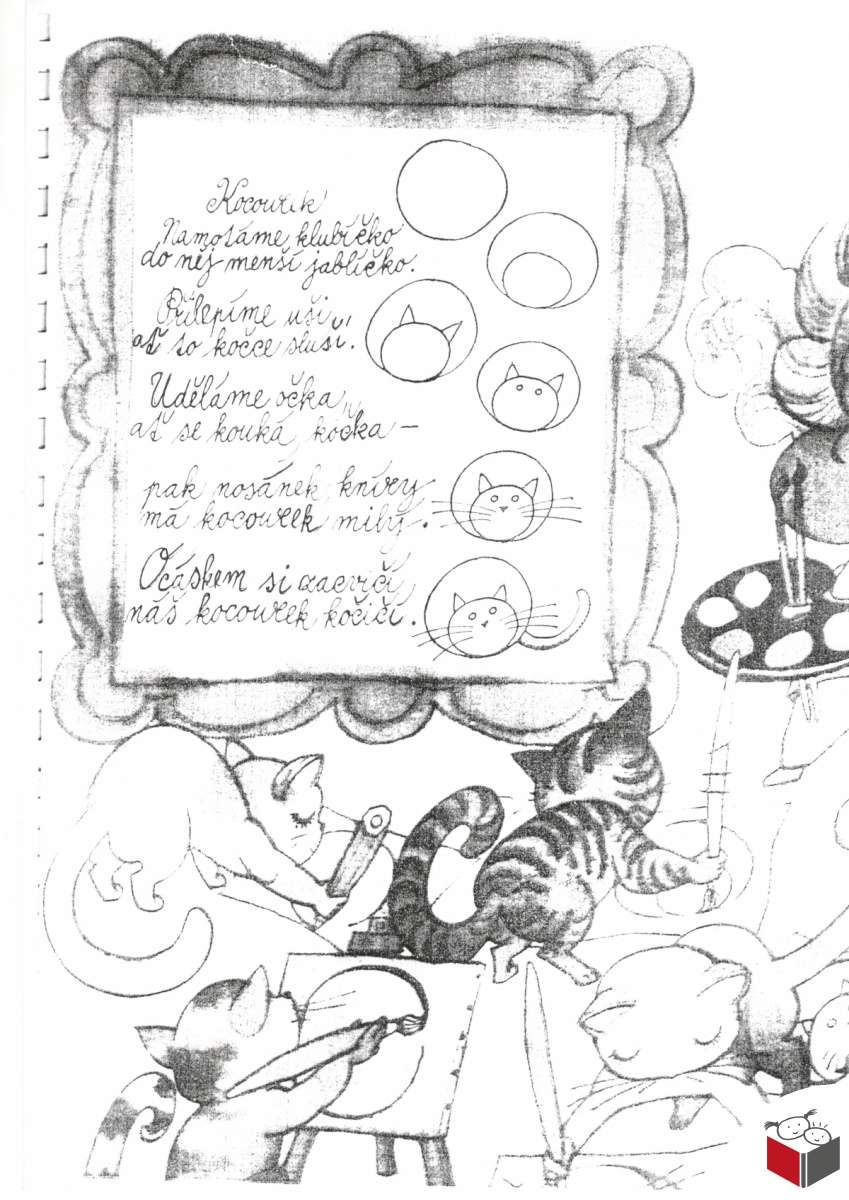 Kocourek
Namotáme klubíčko
do něj menší jablíčko.
Přilepíme uši
ať to kočce sluší.
Uděláme očka,
ať se kouká kočka –
pak nosánek, kníry
má kocourek milý.
Ocáskem si zacvičí
náš kocourek kočičí.